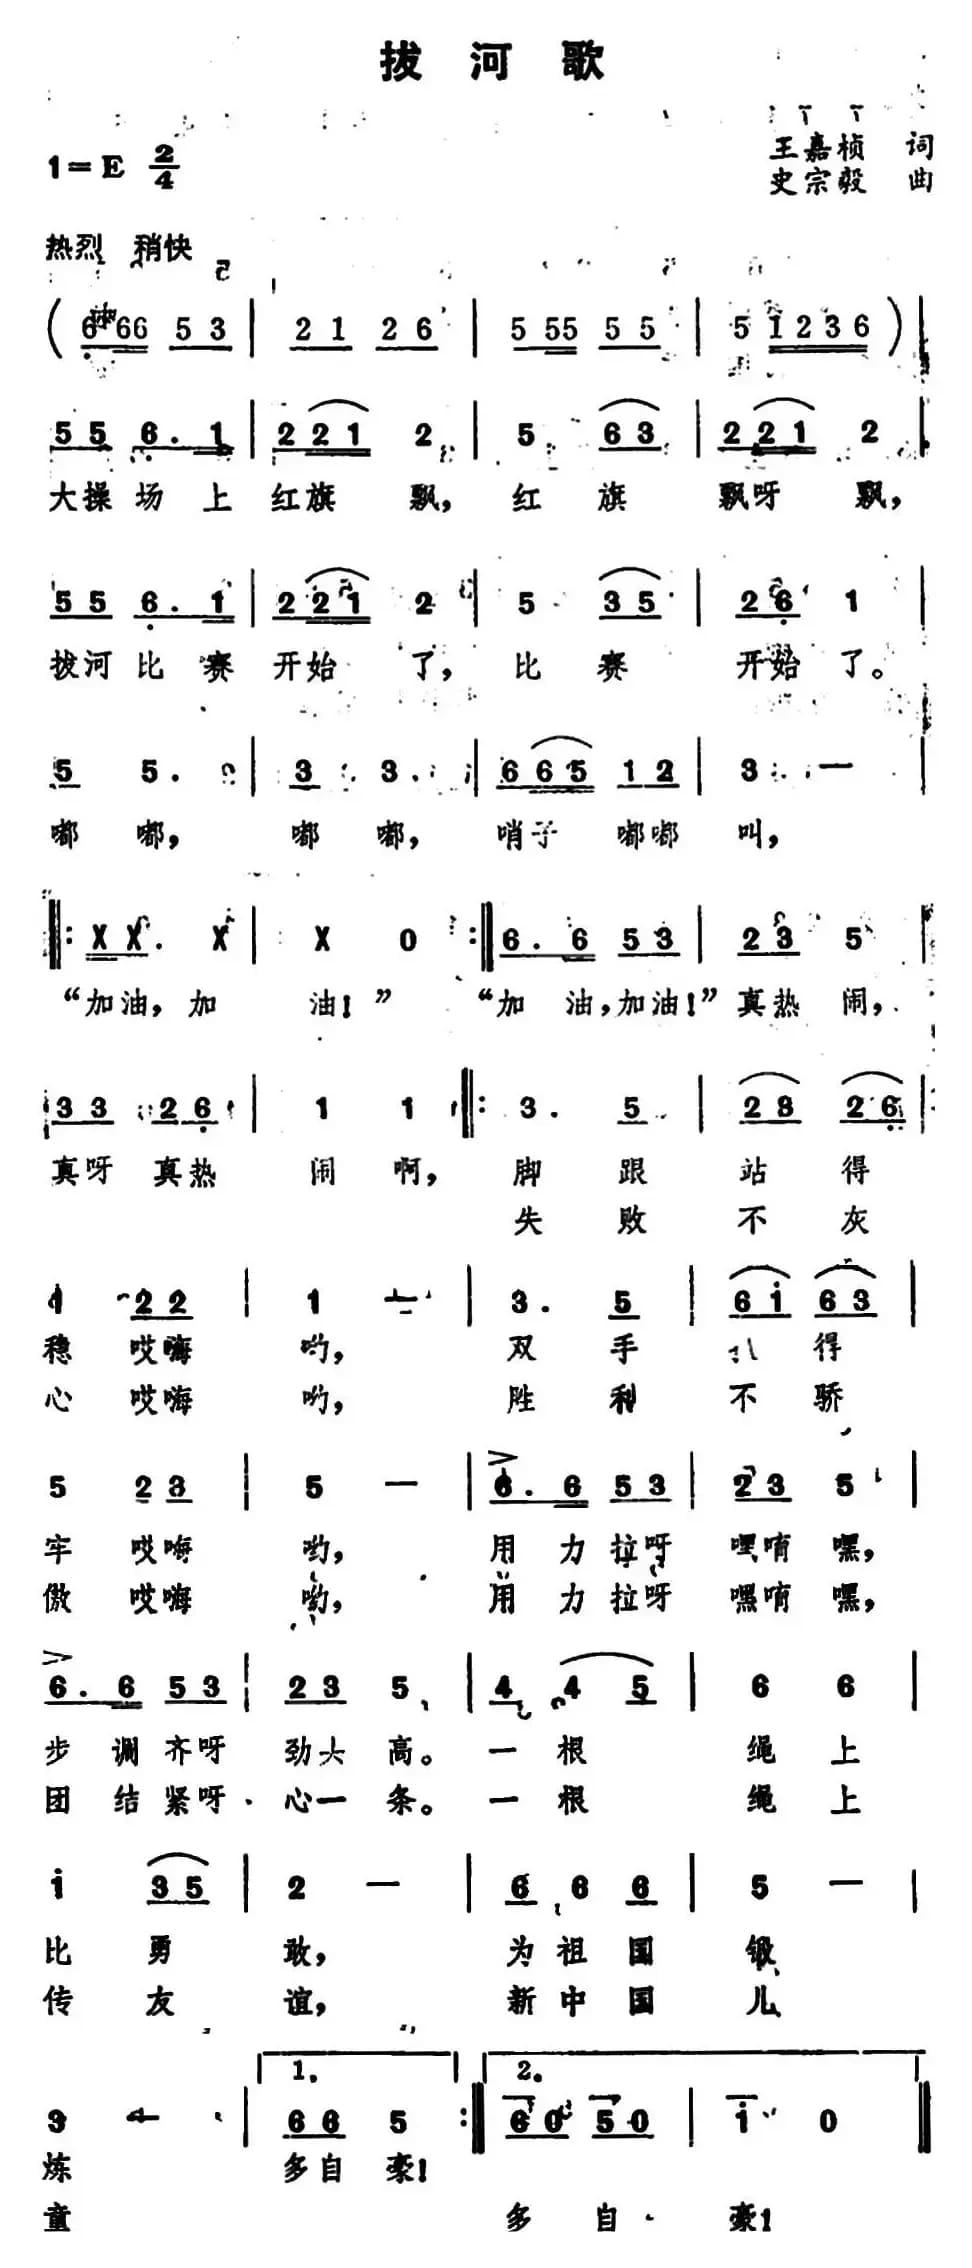 拔河歌
1=E 2/4
王嘉桢 词
史宗毅 曲
热烈 稍快
( 6 66 5 3 | 2 1 2 6 | 5 55 5 5 | 5 1236 ) |
5 5 6. 1 | 2 2 1 2 | 5 6 3 | 2 2 1 2 |
大操场上 红旗 飘, 红 旗 飘呀 飘,
5 5 6. 1 | 2 2 1 2 | 5 3 5 | 2 6 1 |
拔河比赛 开始 了, 比 赛 开始 了。
5 5. | 3 3. | 6 6 5 1 2 | 3 — |
嘟 嘟, 嘟 嘟, 哨子 嘟嘟 叫,
‖: X X. X | X 0 :‖ 6. 6 5 3 | 2 3 5 |
“加油, 加 油!” “加 油,加油!” 真热 闹,
3 3 2 6 | 1 1 ‖: 3. 5 | 2 3 2 6 |
真呀 真热 闹 啊, 脚 跟 站 得
失 败 不 灰
1 2 2 | 1 — | 3. 5 | 6 i 6 3 |
稳 哎嗨 哟, 双 手 得
心 哎嗨 哟, 胜 利 不 骄
5 2 3 | 5 — | 6. 6 5 3 | 2 3 5 |
牢 哎嗨 哟, 用 力拉呀 嘿唷 嘿,
傲 哎嗨 哟, 用 力拉呀 嘿唷 嘿,
6. 6 5 3 | 2 3 5 | 4 4 5 | 6 6 |
步 调齐呀 劲大 高。 一 根 绳 上
团 结紧呀 心一 条。 一 根 绳 上
i 3 5 | 2 — | 6 6 6 | 5 — |
比 勇 敢, 为 祖 国 锻
传 友 谊, 新 中 国 儿
1. 2.
3 — | 6 6 5 :‖ 6 0 5 0 | i 0 ‖
炼 多自 豪!
童 多 自 豪!